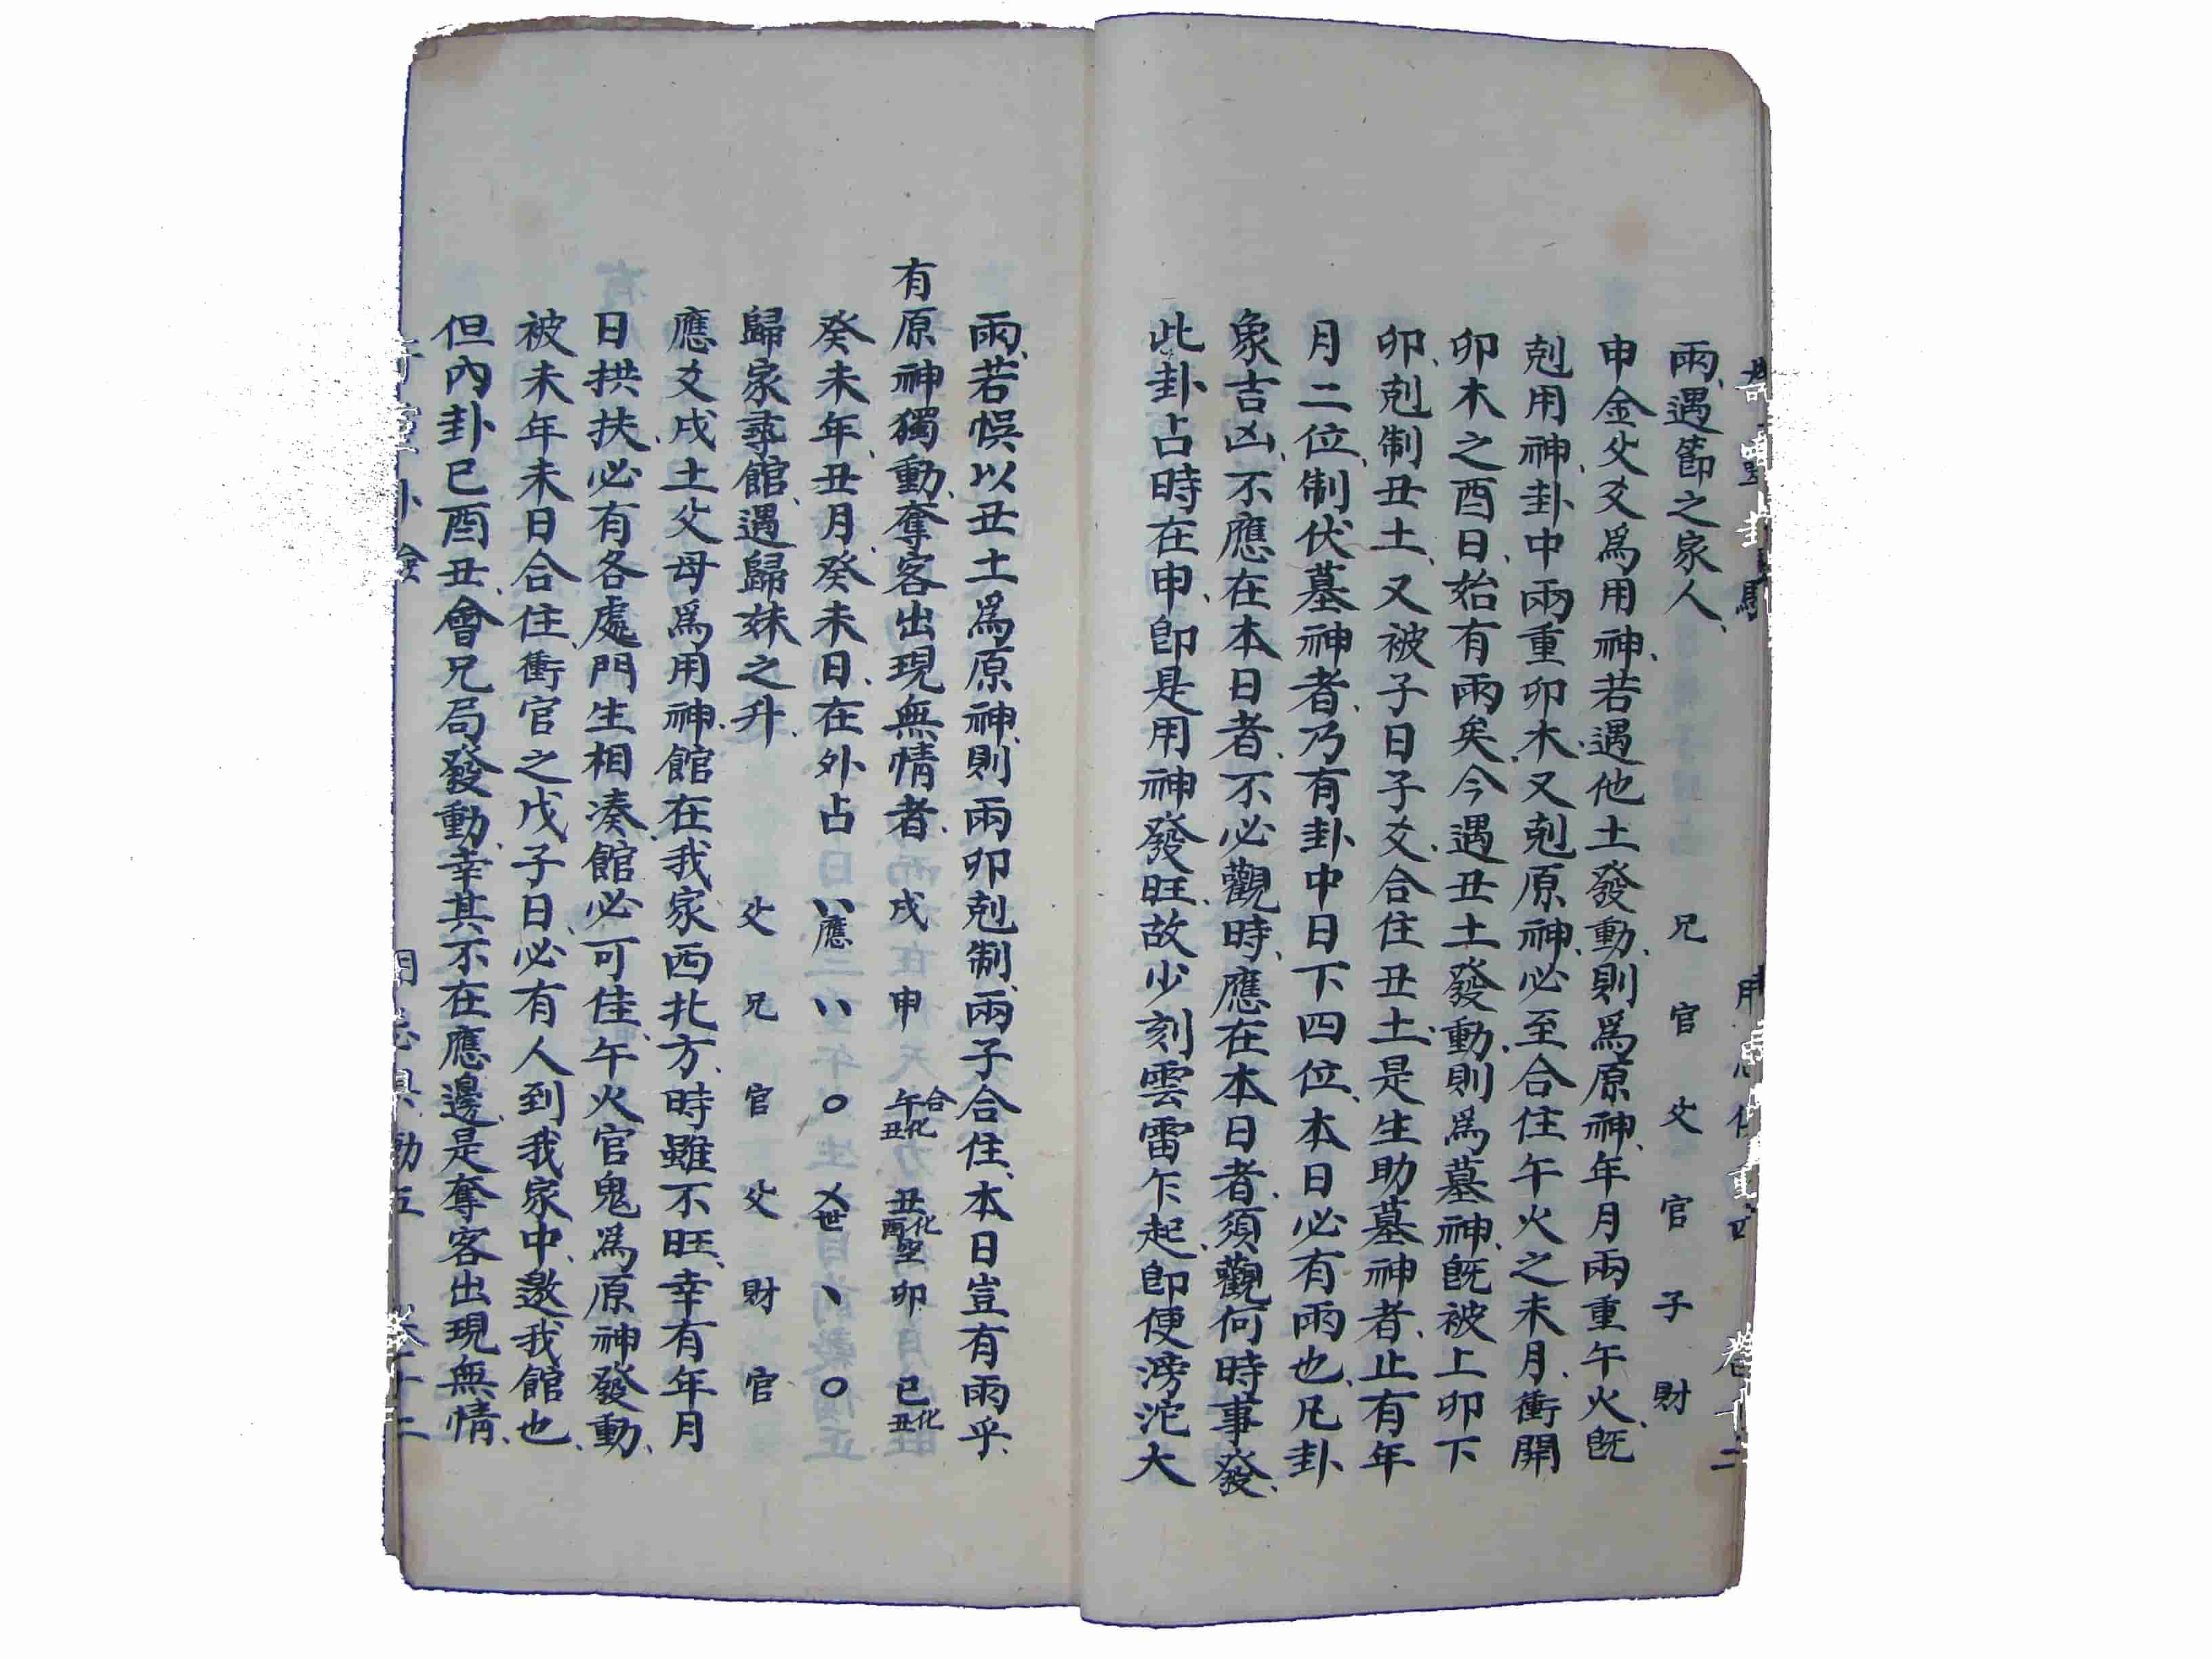 雨、遇節之家人、 兄 官 父 官 子 財
申金父爻爲用神、若遇他土發動、則爲原神、年月兩重午火、既
剋用神、卦中兩重卯木、又剋原神、必至合住午火之未月、衝開
卯木之酉日、始有雨矣、今遇丑土發動、則爲墓神、既被上卯下
卯、剋制丑土、又被子日子爻、合住丑土、是生助墓神者、止有年
月二位、制伏墓神者、乃有卦中日下四位、本日必有雨也、凡卦
象吉凶、不應在本日者、不必觀時、應在本日者、須觀何時事發、
此卦占時在申、卽是用神發旺、故少刻雲雷乍起、卽便滂沱大
雨、若悞以丑土爲原神、則兩卯剋制、兩子合住、本日豈有雨乎、
有原神獨動、奪客出現無情者、 戌 申 午合丑化 丑酉化空 卯 巳丑化
癸未年、丑月癸未日、在外占 〃應 〃 〇 乂世 、 〇
歸家尋館、遇歸妹之升、 父 兄 官 父 財 官
應爻戌土父母爲用神、館在我家西北方、時雖不旺、幸有年月
日拱扶、必有各處門生相湊、館必可佳、午火官鬼爲原神發動、
被未年未日合住、衝官之戊子日、必有人到我家中、邀我館也、
但內卦巳酉丑、會兄局發動、幸其不在應邊、是奪客出現無情、